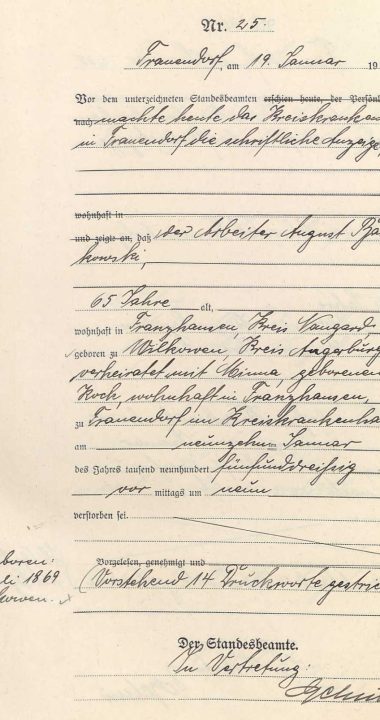 Nr. 25.
Frauendorf, am 19. Januar 19
Vor dem unterzeichneten Standesbeamten erschien heute, der Persönl
nach machte heute das Kreiskranken
in Frauendorf die schriftliche Anzeige,
wohnhaft in
und zeigte an, daß der Arbeiter August
kowski,
65 Jahre alt,
wohnhaft in Franzhausen, Kreis Naugard,
geboren zu Wilkowen, Kreis Angerburg
verheiratet mit Minna, geborenen
Koch, wohnhaft in Franzhausen,
zu Frauendorf im Kreiskrankenha
am neunzehn Januar
des Jahres tausend neunhundert fünfunddreissig
vor mittags um neun
verstorben sei.
boren:
li 1869
kowen.
Vorgelesen, genehmigt und
(Vorstehend 14 Druckworte gestric
Der Standesbeamte.
In Vertretung: